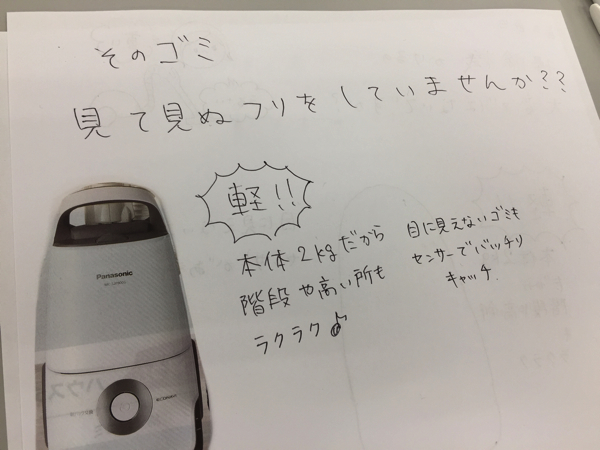 そのゴミ
見て見ぬフリをしていませんか??
軽!!
本体2kgだから
階段や高い所も
ラクラク♪
目に見えないゴミも
センサーでバッチリ
キャッチ
Panasonic